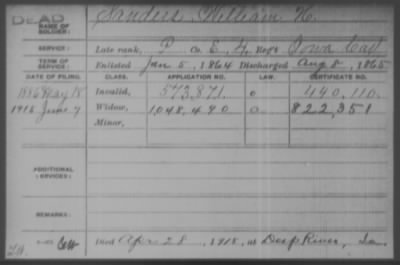 DEAD
NAME OF SOLDIER: Sanders, William H.
SERVICE: Late rank, P Co. E, 4 Reg't Iowa Cav
TERM OF SERVICE: Enlisted Jan 5, 1864 Discharged Aug 8, 1865
DATE OF FILING. CLASS. APPLICATION NO. LAW. CERTIFICATE NO.
1886 May 18 Invalid, 573,871. 440,110.
Widow, 1,048,490 822,351
June 7
Minor,
ADDITIONAL SERVICES:
REMARKS:
Died Apr 28, at Deep River, Ia.